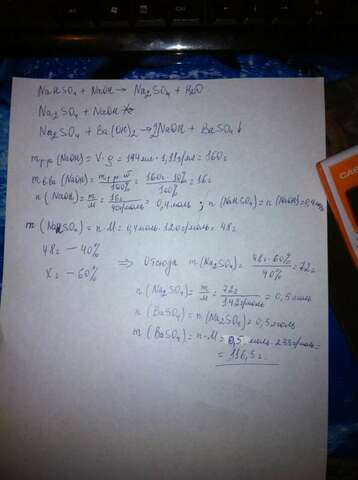 NaHSO₄ + NaOH → Na₂SO₄ + H₂O
Na₂SO₄ + NaOH
Na₂SO₄ + Ba(OH)₂ → 2NaOH + BaSO₄↓
m р-р (NaOH) = V·ρ = 144 мл · 1,11 г/мл = 160 г
m в-ва (NaOH) = m р-р · ω / 100% = 160 г · 10% / 100% = 16 г
n (NaOH) = m/M = 16 г / 40 г/моль = 0,4 моль ; n (NaHSO₄) = n (NaOH) = 0,4 моль
m (NaHSO₄) = n·M = 0,4 моль · 120 г/моль = 48 г
48 г — 40%
x г — 60%
⇒ Отсюда m (Na₂SO₄) = 48 г · 60% / 40% = 72 г
n (Na₂SO₄) = m/M = 72 г / 142 г/моль = 0,5 моль
n (BaSO₄) = n (Na₂SO₄) = 0,5 моль
m (BaSO₄) = n·M = 0,5 моль · 233 г/моль =
= 116,5 г